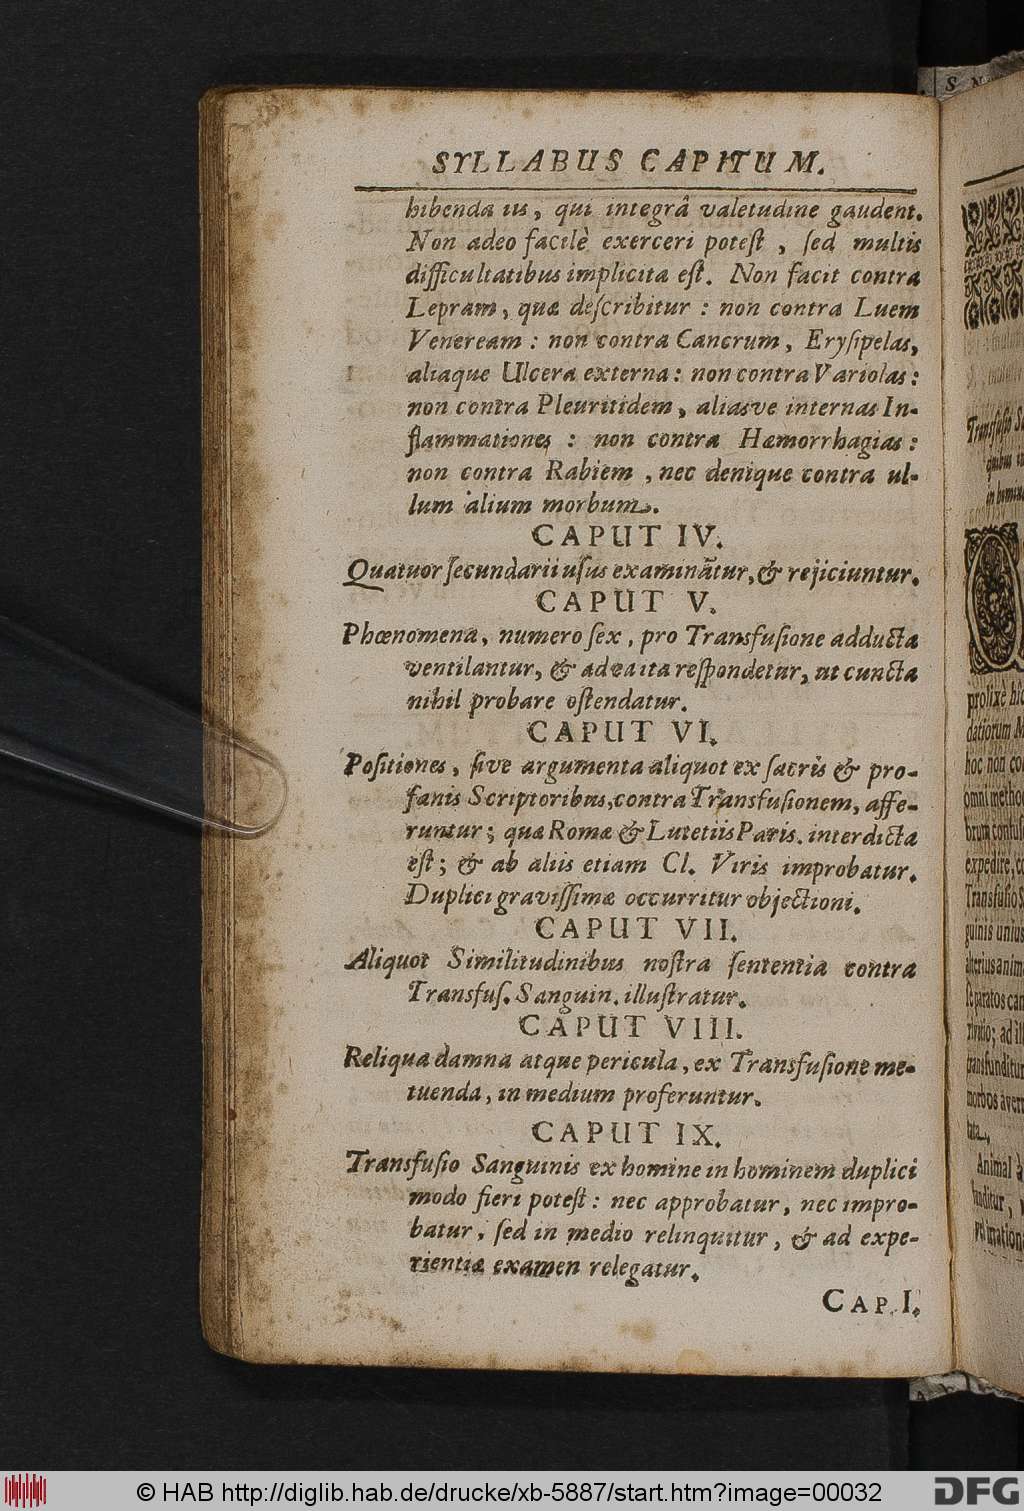 SYLLABUS CAPITUM.
hibenda iis, qui integrâ valetudine gaudent.
Non adeo facilè exerceri poteſt, ſed multis
difficultatibus implicita eſt. Non facit contra
Lepram, quæ deſcribitur: non contra Luem
Veneream: non contra Cancrum, Eryſipelas,
aliaque Ulcera externa: non contra Variolas:
non contra Pleuritidem, aliasve internas In-
flammationes: non contra Hæmorrhagias:
non contra Rabiem, nec denique contra ul-
lum alium morbum.
CAPUT IV.
Quatuor ſecundarii uſus examinãtur, & rejiciuntur.
CAPUT V.
Phœnomena, numero ſex, pro Transfuſione adducta
ventilantur, & ad ea ita reſpondetur, ut cuncta
nihil probare oſtendatur.
CAPUT VI.
Poſitiones, ſive argumenta aliquot ex ſacris & pro-
fanis Scriptoribus, contra Transfuſionem, affe-
runtur; quæ Romæ & Lutetiis Paris. interdicta
eſt; & ab aliis etiam Cl. Viris improbatur.
Duplici graviſſimæ occurritur objectioni.
CAPUT VII.
Aliquot Similitudinibus noſtra ſententia contra
Transfuſ. Sanguin. illuſtratur.
CAPUT VIII.
Reliqua damna atque pericula, ex Transfuſione me-
tuenda, in medium proferuntur.
CAPUT IX.
Transfuſio Sanguinis ex homine in hominem duplici
modo fieri poteſt: nec approbatur, nec impro-
batur, ſed in medio relinquitur, & ad expe-
rientiæ examen relegatur.
CAP. I.
prolixè hîc
datiorum M
hoc non co
omni metho
brum confuſ
expedire, c
Transfuſio S
guinis unius
alterius anim
ſeparatos can
rivatio; ad il
transfunditur
morbos avert
Animal
funditur,
© HAB http://diglib.hab.de/drucke/xb-5887/start.htm?image=00032
DFG